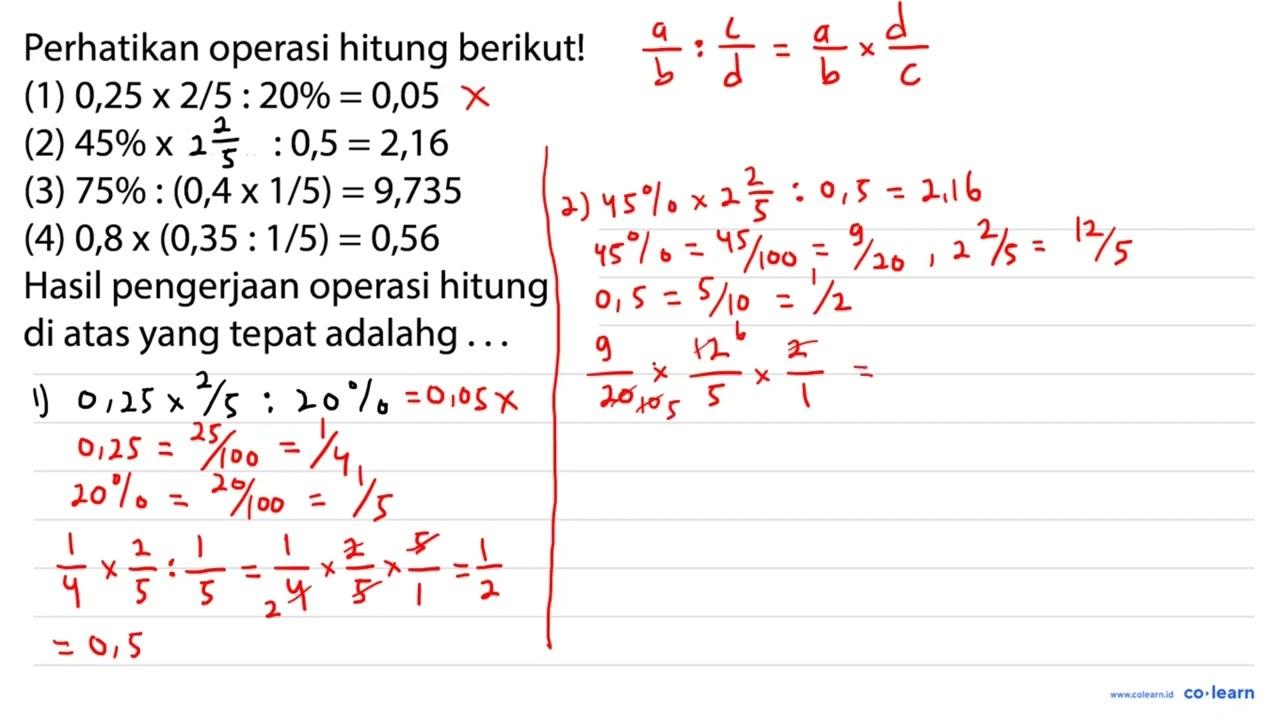 Perhatikan operasi hitung berikut!
(1) 0,25 x 2/5 : 20% = 0,05 x
(2) 45% x 2 2/5 : 0,5 = 2,16
(3) 75% : (0,4 x 1/5) = 9,735
(4) 0,8 x (0,35 : 1/5) = 0,56
Hasil pengerjaan operasi hitung
di atas yang tepat adalahg . . .
1) 0,25 x 2/5 : 20% = 0,05 x
0,25 = 25/100 = 1/4,
20% = 20/100 = 1/5
1/4 x 2/5 : 1/5 = 1/4 2 x 2/5 x 5/1 = 1/2
= 0,5
a/b : c/d = a/b x d/c
2) 45% x 2 2/5 : 0,5 = 2,16
45% = 45/100 = 9/20 , 2 2/5 = 12/5
0,5 = 5/10 = 1/2
9/20 10 5 x 12 6/5 x 2/1 =
www.colearn.id co·learn